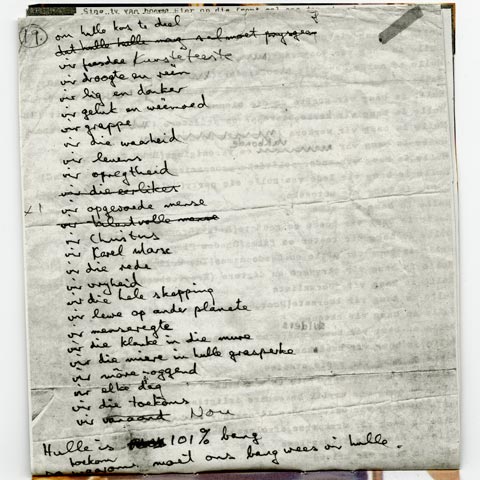 19
om hulle kos te deel
dat hulle hulle mag s
vir feesdae Kunstefeeste
vir droogte en reën
vir lig en donker
vir geluk en weemoed
vir grappe
vir die waarheid
vir leuens
vir opregtheid
vir die eerlikes
x1 vir opgevoede mense
vir talentvolle mense
vir Christus
vir Karel Marx
vir die rede
vir vryheid
vir die hele skepping
vir lewe op ander planete
vir menseregte
vir die klanke in die mure
vir die miere in hulle grasperke
vir môre oggend
vir elke dag
vir die toekoms
vir vanaand Nou
Hulle is 101% bang
hoekom moet ons bang wees vir hulle.